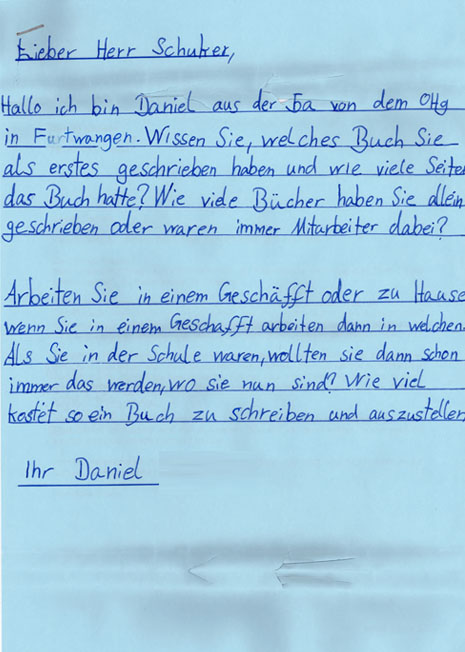 Lieber Herr Schuker,
Hallo ich bin Daniel aus der 5a von dem OHg
in Furtwangen. Wissen Sie, welches Buch Sie
als erstes geschrieben haben und wie viele Seiten
das Buch hatte? Wie viele Bücher haben Sie allein
geschrieben oder waren immer Mitarbeiter dabei?
Arbeiten Sie in einem Geschäfft oder zu Hause
wenn Sie in einem Geschafft arbeiten dann in welchen.
Als Sie in der Schule waren, wollten sie dann schon
immer das werden, wo sie nun sind? Wie viel
kostet so ein Buch zu schreiben und auszustellen
Ihr Daniel